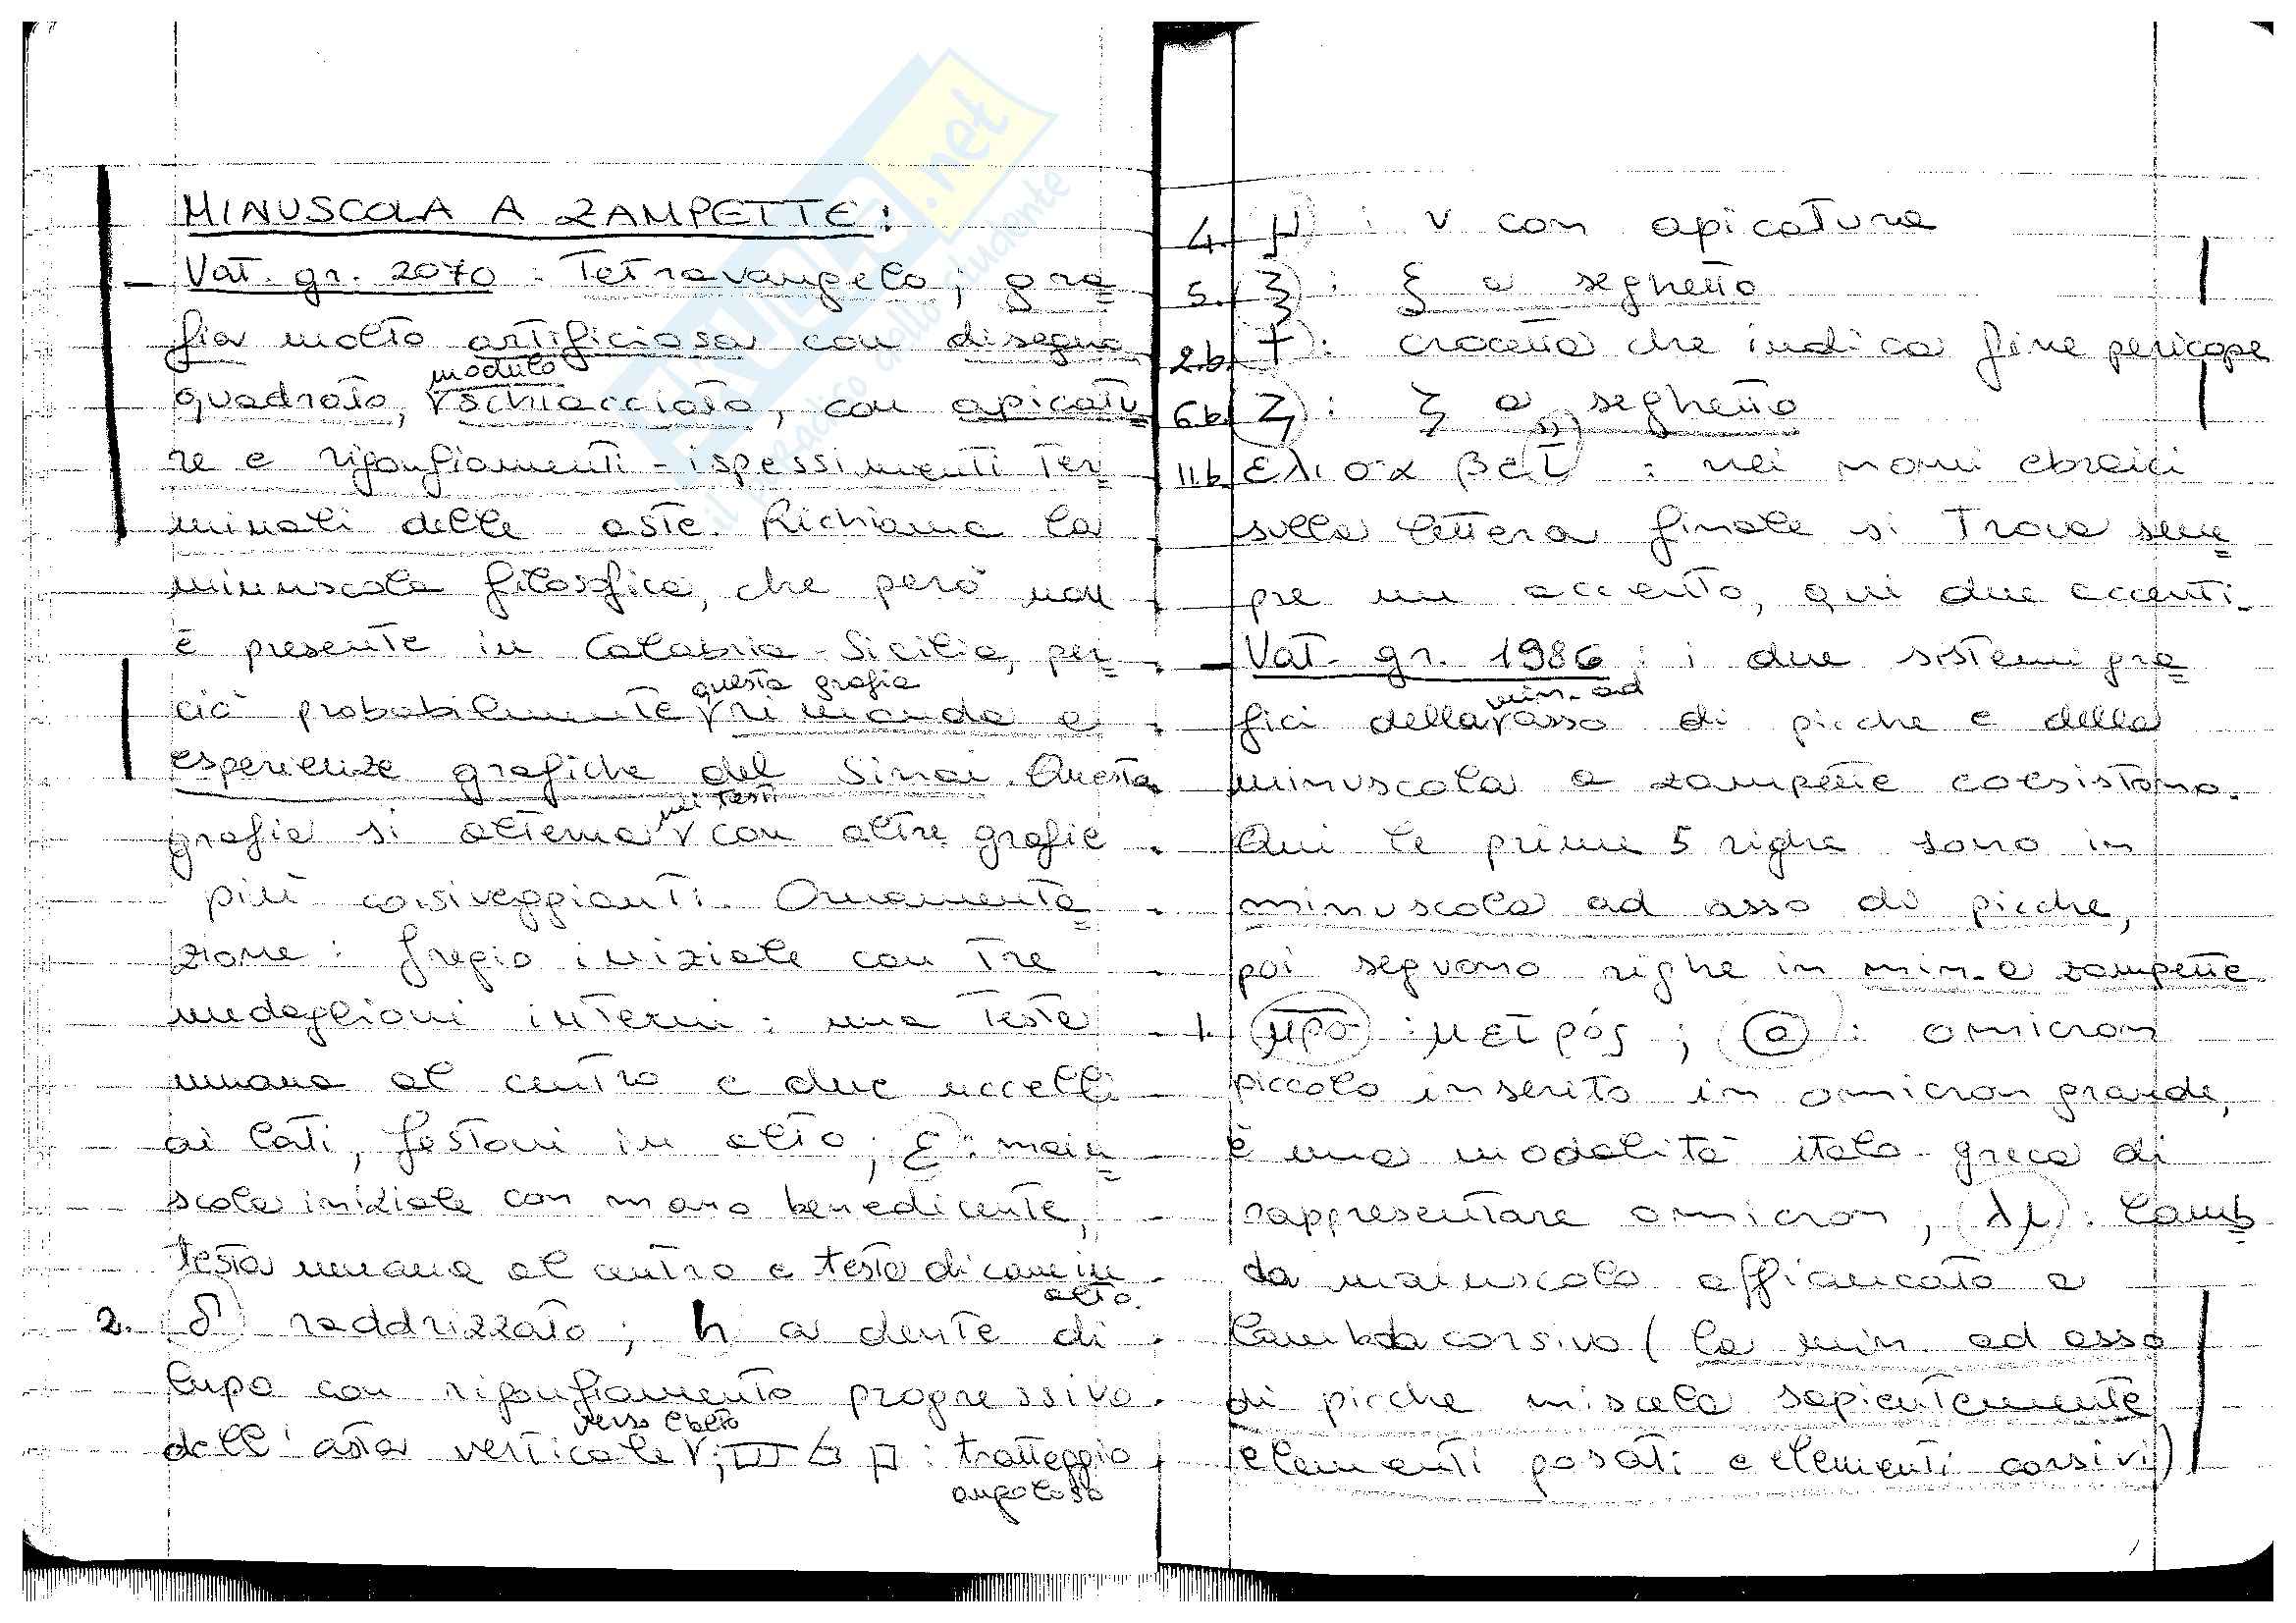 MINUSCOLA A ZAMPETTE:
- Vat. gr. 2070: Tetravangelo; gra=
fia molto artificiosa con disegno
quadrato, modulo schiacciato, con apicatu=
re e rigonfiamenti - ispessimenti ter=
minali delle aste. Richiama la
minuscola filosofica, che però non
è presente in Calabria-Sicilia, per=
ciò probabilmente questa grafia rimanda a
esperienze grafiche del Sinai. Questa
grafia si alterna nei testi con altre grafie
più corsiveggianti. Ornamenta=
zione: fregio iniziale con tre
medaglioni interni: una testa
umana al centro e due uccelli
ai lati, festoni in alto; ε: maiu=
scola iniziale con mano benedicente,
testa umana al centro e testa di cane in
alto.
2. δ raddrizzato; h a dente di
lupo con rigonfiamento progressivo
dell'asta verticale verso l'alto; : tratteggio
angoloso
4. μ: ν con apicatura
5. ξ: ξ a seghetto
2.b. +: crocetta che indica fine pericope
6b. ζ: ζ a seghetto
11.b. ελισα βετ: nei nomi ebraici
sulla lettera finale si trova sem=
pre un accento, qui due accenti.
- Vat. gr. 1986: i due sistemi gra=
fici della min. ad asso di picche e della
minuscola a zampette coesistono.
Qui le prime 5 righe sono in
minuscola ad asso di picche,
poi seguono righe in min. a zampette
1. μρο: μετρός; : omicron
piccolo inserito in omicron grande,
è una modalità italo-greca di
rappresentare omicron; λλ: lamb=
da maiuscolo affiancato a
lambda corsivo (la min. ad asso
di picche miscela sapientemente
elementi posati e elementi corsivi)